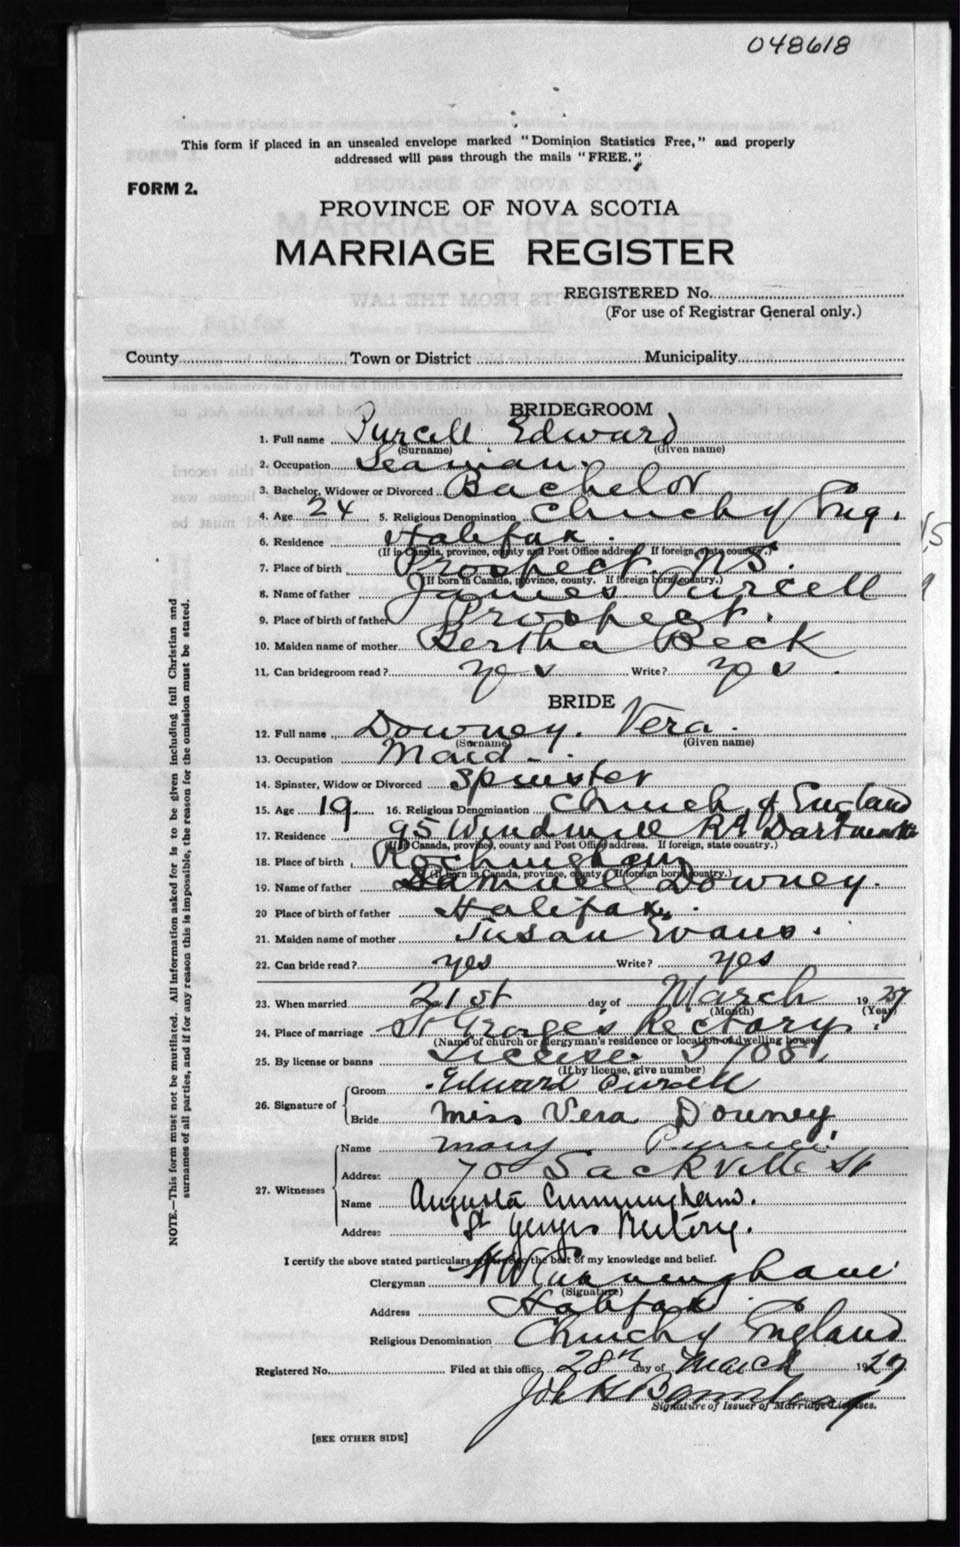 048618
This form if placed in an unsealed envelope marked "Dominion Statistics Free," and properly
addressed will pass through the mails "FREE."
FORM 2.
PROVINCE OF NOVA SCOTIA
MARRIAGE REGISTER
REGISTERED No.
(For use of Registrar General only.)
County Town or District Municipality
BRIDEGROOM
1. Full name Purcell Edward
(Surname) (Given name)
2. Occupation Seaman.
3. Bachelor, Widower or Divorced Bachelor
4. Age 24 5. Religious Denomination Church of Eng.
6. Residence Halifax.
(If in Canada, province, county and Post Office address. If foreign, state country.)
7. Place of birth Prospect NS.
(If born in Canada, province, county. If foreign born, country.)
8. Name of father James Purcell
9. Place of birth of father Prospect.
10. Maiden name of mother Bertha Beck
11. Can bridegroom read? yes Write? yes
BRIDE
12. Full name Downey. Vera.
(Surname) (Given name)
13. Occupation Maid
14. Spinster, Widow or Divorced Spinster
15. Age 19. 16. Religious Denomination Church of England
17. Residence 95 Windmill Rd Dartmouth
(If in Canada, province, county and Post Office address. If foreign, state country.)
18. Place of birth Rockingham
(If born in Canada, province, county. If foreign born, country.)
19. Name of father Samuel Downey.
20 Place of birth of father Halifax.
21. Maiden name of mother Susan Evans.
22. Can bride read? yes Write? yes
23. When married 21st day of March 19 27
(Month) (Year)
24. Place of marriage St George's Rectory.
(Name of church or clergyman's residence or location of dwelling house)
25. By license or banns License
(If by license, give number)
26. Signature of Groom Edward Purcell
Bride Miss Vera Downey
27. Witnesses Name Mary Purcell
Address 70 Sackville St
Name Augusta Cunningham.
Address St Georges Rectory.
I certify the above stated particulars are true to the best of my knowledge and belief.
Clergyman H W Cunningham
(Signature)
Address Halifax
Religious Denomination Church of England
Registered No. Filed at this office, 28th day of March 1927
Signature of Issuer of Marriage Licenses.
[SEE OTHER SIDE]
NOTE.—This form must not be mutilated. All information asked for is to be given including full Christian and
surnames of all parties, and if for any reason this is impossible, the reason for the omission must be stated.